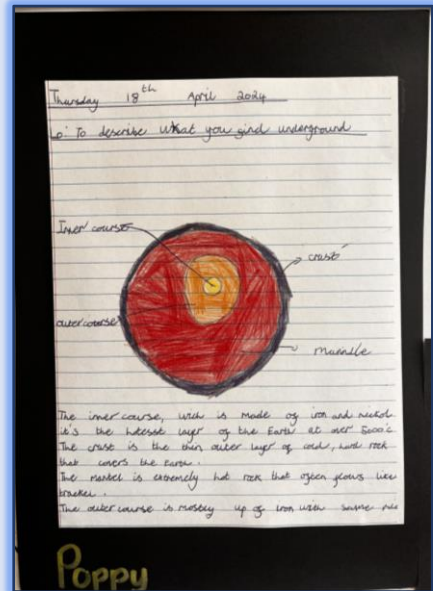 Thursday 18th April 2024
Lo: To describe what you find underground
Inner course
crust
outercourse
mantle
The inner course, wich is made of iron and nickol
it's the hotesst layer of the Earth at over 5000°c
The crust is the thin outer layer of cold, hard rock
that covers the Earth.
The mantel is extremely hot rock that often glows like
The outer course is mostley up of iron with some
Poppy